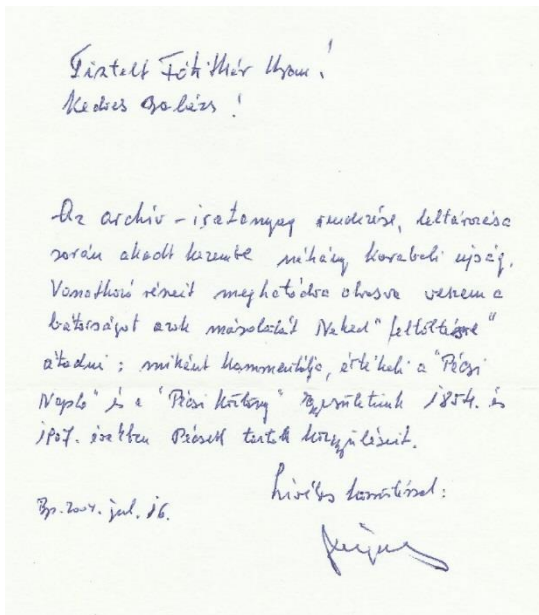 Tisztelt Főtitkár Uram!
Kedves Balázs!
Az archiv - iratanyag rendezése, leltározása
során akadt kezembe néhány korabeli ujság.
Vonatkozó részeit meghatódva olvasva veszem a
bátorságot azok másolatát Neked "feltöltésre"
átadni; miként kommentálja, értékeli a "Pécsi
Napló" és a "Pécsi Közlöny" Egyesületünk és
1907. években Pécsett tartott közgyűléseit.
Szívélyes üdvözlettel:
Bp. 2004. jul. 16.